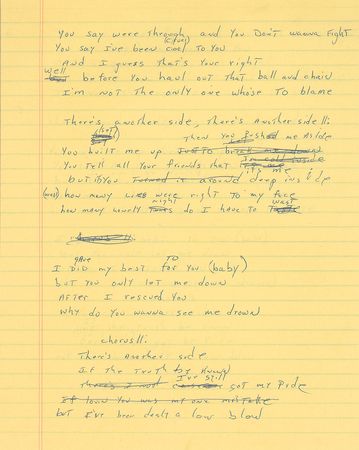 You say were through and You Don't wanna Fight
(cruel)
You say I've been cool to You
And I guess that's Your right
well before you haul out that ball and chain
I'm not the only one whose to blame
There's, another side, there's Another side ll:
(just) Then you pushed me Aside
You built me up Just to break me down
You tell all Your friends that I'm cold inside
it's me
but in You turned it around deep inside
(well) how many lies were right to my face
night wast
how many lonely do I have to
gave TO
I DID my best for You (baby)
but you only let me down
After I rescued You
Why do You wanna see me drown
chorus ll:
There's Another side
If the Truth be Known
I've still got my Pride
If lovin You was my one mistake
but I've been dealt a low blow